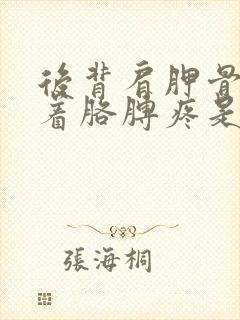 後背肩胛骨
着胳脾疼是
張海桐